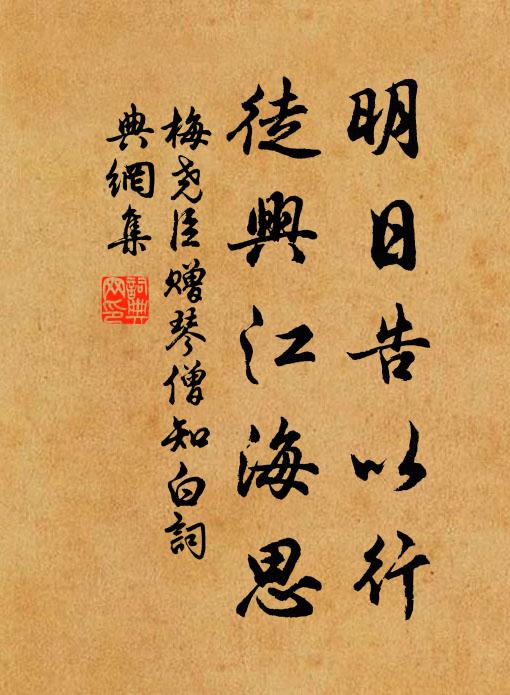 明日告以行
徒興江海思
梅尧臣赠琴僧知白詞
典網集
詞典
网印